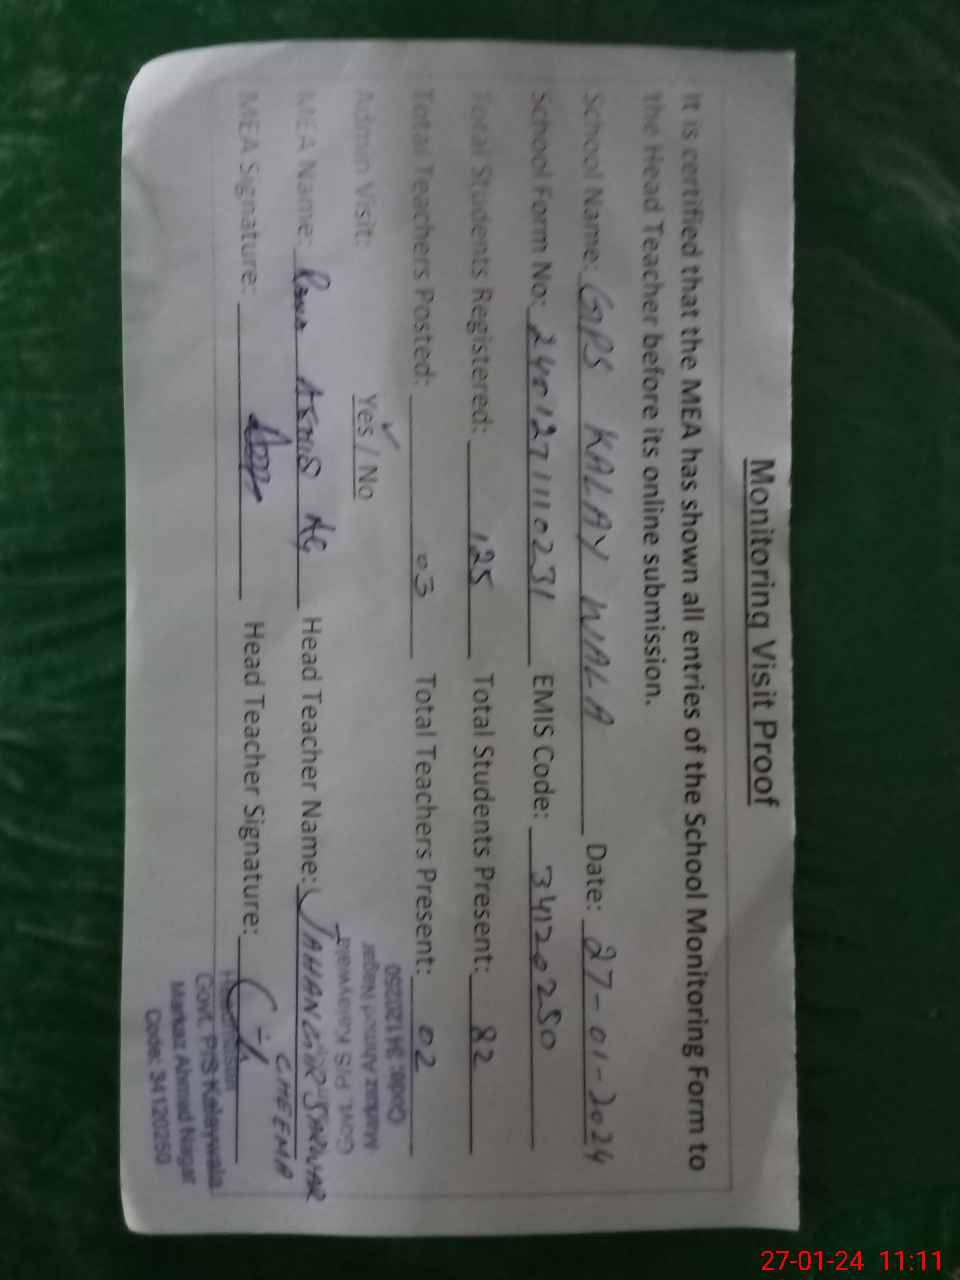 Monitoring Visit Proof
It is certified that the MEA has shown all entries of the School Monitoring Form to
the Head Teacher before its online submission.
School Name: GPS KALAY WALA Date: 27-01-2024
School Form No: 2401271110231 EMIS Code: 34120250
Total Students Registered: 125 Total Students Present: 82
Total Teachers Posted: 03 Total Teachers Present: 02
Admin Visit: Yes / No
MEA Name: Head Teacher Name: JAHANGIR SARWAR
CHEEMA
MEA Signature: Head Teacher Signature:
Govt. P/S Kalaywala
Markaz Ahmad Nagar
Code: 34120250
Govt. P/S Kalaywala
Markaz Ahmad Nagar
Code: 34120250
27-01-24 11:11